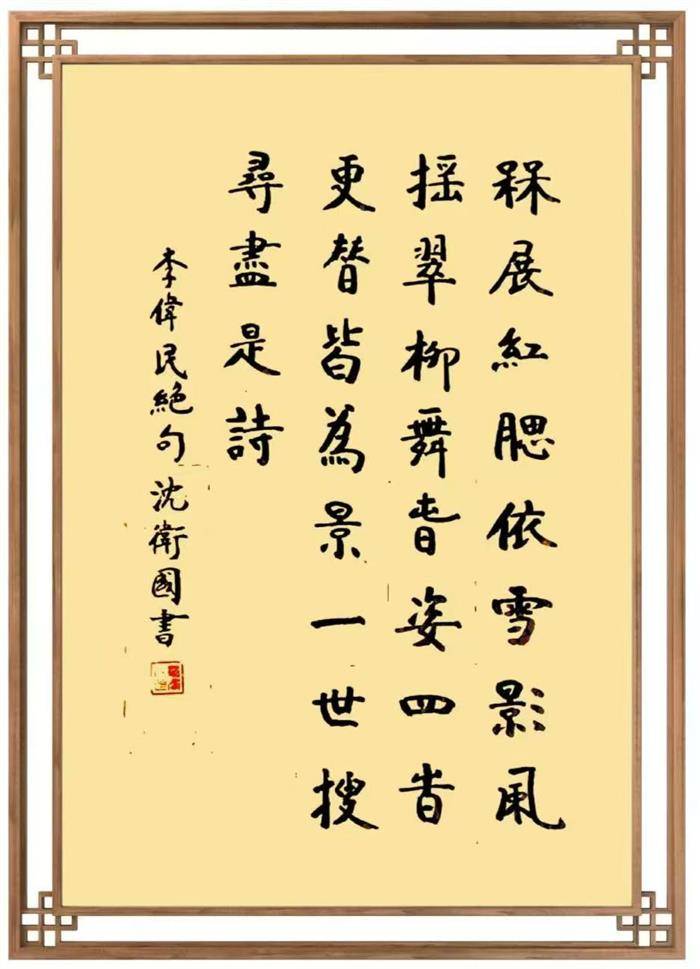 槑展紅腮依雪影風
搖翠柳舞旾姿四旹
更替皆為景一世搜
尋盡是詩
李偉民絕句沈衛國書